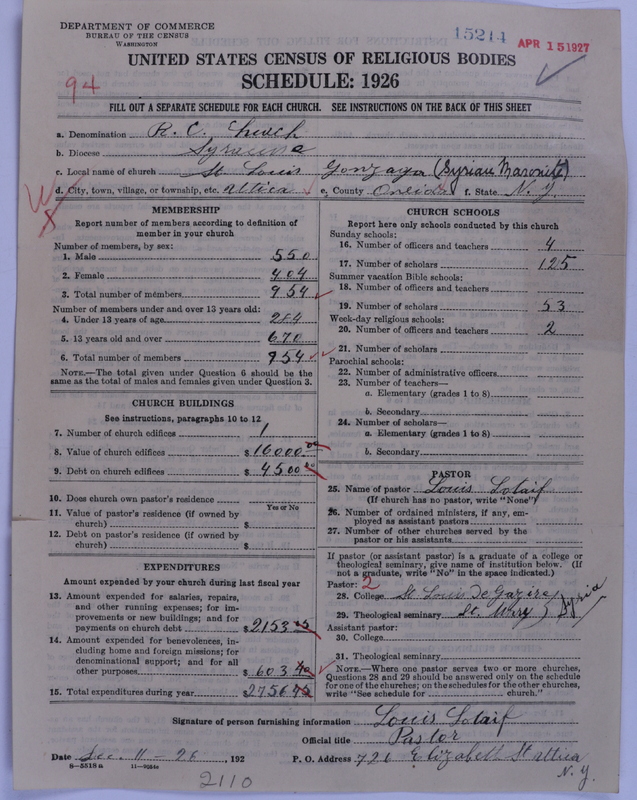 DEPARTMENT OF COMMERCE
BUREAU OF THE CENSUS
WASHINGTON
15214
APR 15 1927
UNITED STATES CENSUS OF RELIGIOUS BODIES
SCHEDULE: 1926
94
FILL OUT A SEPARATE SCHEDULE FOR EACH CHURCH. SEE INSTRUCTIONS ON THE BACK OF THIS SHEET
a. Denomination R. C. Church
b. Diocese Syracuse
c. Local name of church St. Louis Gonzaga (Syrian Maronite)
d. City, town, village, or township, etc. Attica e. County Oneida f. State N. Y.
MEMBERSHIP
Report number of members according to definition of
member in your church
Number of members, by sex:
1. Male 550
2. Female 404
3. Total number of members 954
Number of members under and over 13 years old:
4. Under 13 years of age 284
5. 13 years old and over 670
6. Total number of members 954
NOTE.—The total given under Question 6 should be the
same as the total of males and females given under Question 3.
CHURCH BUILDINGS
See instructions, paragraphs 10 to 12
7. Number of church edifices 1
8. Value of church edifices $ 16000.00
9. Debt on church edifices $ 4500.00
10. Does church own pastor's residence
Yes or No
11. Value of pastor's residence (if owned by
church) $
12. Debt on pastor's residence (if owned by
church) $
EXPENDITURES
Amount expended by your church during last fiscal year
13. Amount expended for salaries, repairs,
and other running expenses; for im-
provements or new buildings; and for
payments on church debt $
14. Amount expended for benevolences, in-
cluding home and foreign missions; for
denominational support; and for all
other purposes $
15. Total expenditures during year $
CHURCH SCHOOLS
Report here only schools conducted by this church
Sunday schools:
16. Number of officers and teachers 4
17. Number of scholars 125
Summer vacation Bible schools:
18. Number of officers and teachers
19. Number of scholars 53
Week-day religious schools:
20. Number of officers and teachers 2
21. Number of scholars
Parochial schools:
22. Number of administrative officers
23. Number of teachers—
a. Elementary (grades 1 to 8)
b. Secondary
24. Number of scholars—
a. Elementary (grades 1 to 8)
b. Secondary
PASTOR
25. Name of pastor Louis Lotaif
(If church has no pastor, write "None")
26. Number of ordained ministers, if any, em-
ployed as assistant pastors
27. Number of other churches served by the
pastor or his assistants
If pastor (or assistant pastor) is a graduate of a college or
theological seminary, give name of institution below. (If
not a graduate, write "No" in the space indicated.)
Pastor: 2
28. College St. Louis De Gazire
29. Theological seminary St. Mary } Syria
Assistant pastor:
30. College
31. Theological seminary
NOTE.—Where one pastor serves two or more churches,
Questions 28 and 29 should be answered only on the schedule
for one of the churches; on the schedules for the other churches,
write "See schedule for church."
Signature of person furnishing information Louis Lotaif
Official title Pastor
Date Dec. 11-26, 192 P. O. Address 726 Elizabeth St Attica
N. Y.
8—5518 a
2110